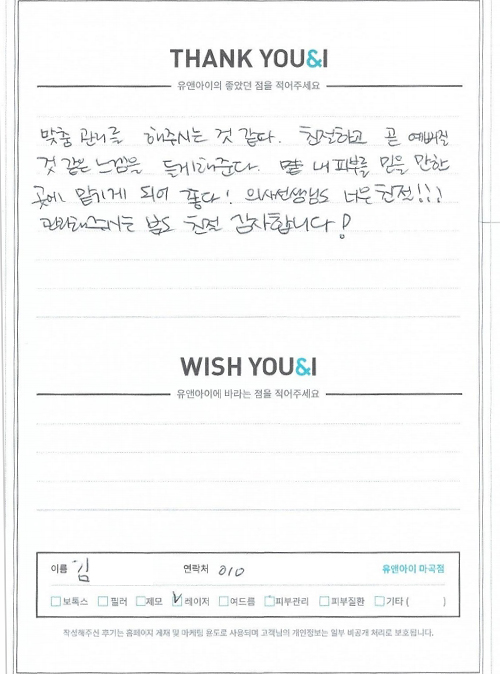 THANK YOU&I
유앤아이의 좋았던 점을 적어주세요
맞춤 관리를 해주시는 것 같다. 친절하고 곧 예뻐질
것 같은 느낌을 듣게해준다. 내 피부를 믿을 만한
곳에 맡기게 되어 좋다! 의사선생님도 너무 친절!!!
관리해주시는 분도 친절 감사합니다!
WISH YOU&I
유앤아이에 바라는 점을 적어주세요
이름 김 연락처 010 유앤아이 마곡점
보톡스 필러 제모 레이저 여드름 피부관리 피부질환 기타 ( )
작성해주신 후기는 홈페이지 게재 및 마케팅 용도로 사용되며 고객님의 개인정보는 일부 비공개 처리로 보호됩니다.